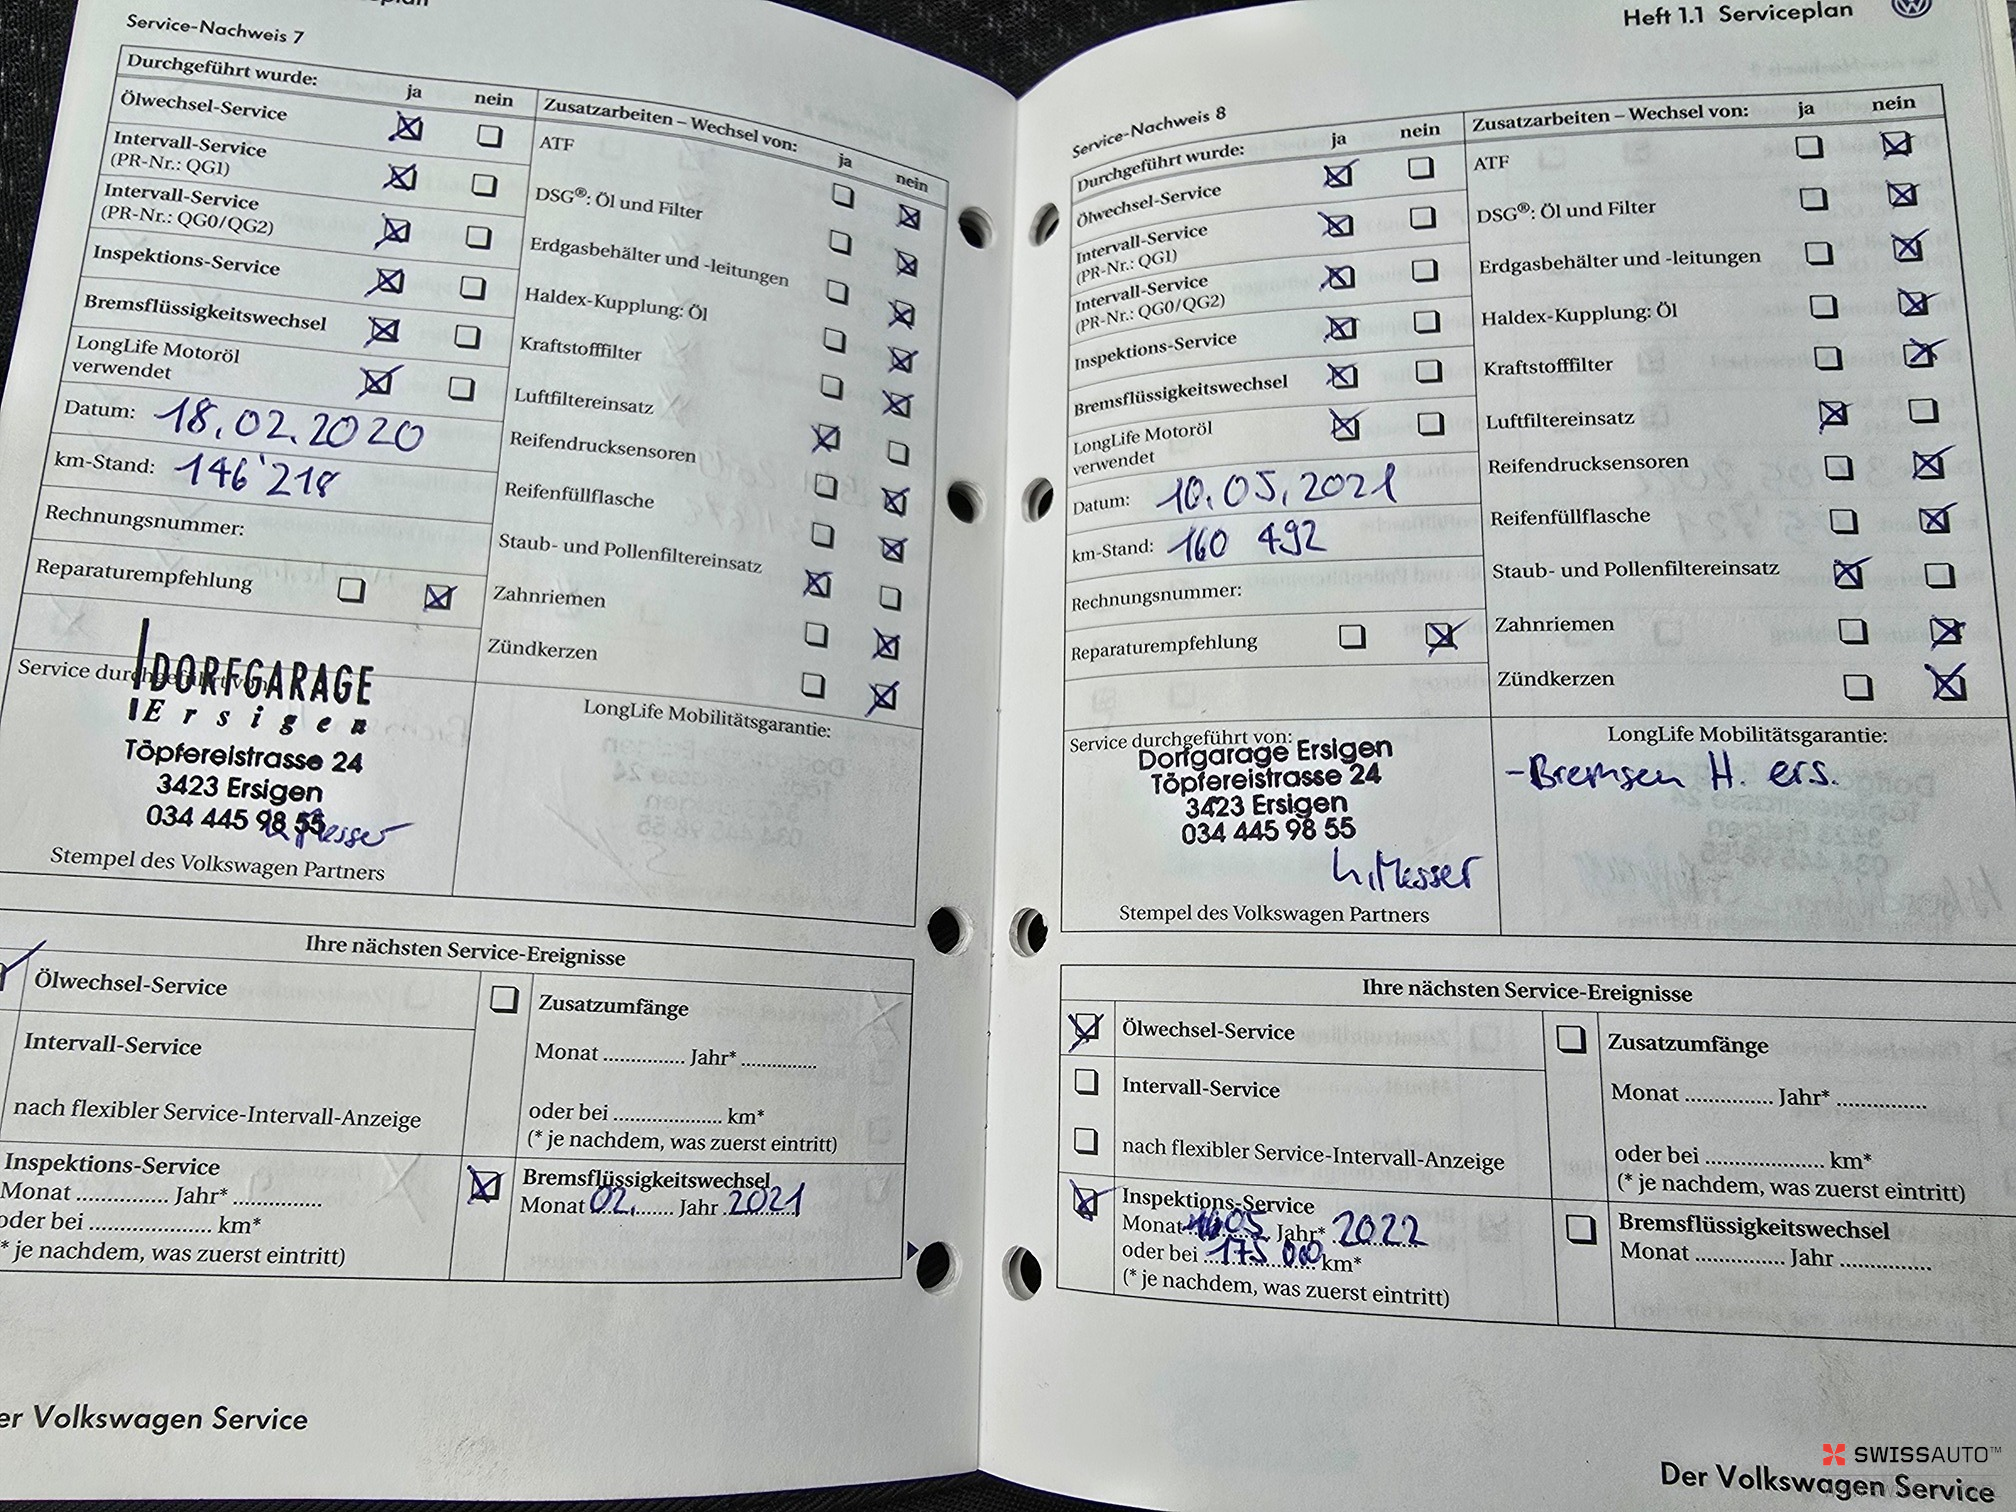 Service-Nachweis 7
Durchgeführt wurde: ja nein
Ölwechsel-Service
Intervall-Service
(PR-Nr.: QG1)
Intervall-Service
(PR-Nr.: QG0/QG2)
Inspektions-Service
Bremsflüssigkeitswechsel
LongLife Motoröl
verwendet
Datum: 18.02.2020
km-Stand: 146'218
Rechnungsnummer:
Reparaturempfehlung
Service durchgeführt von:
DORFGARAGE
Ersigen
Töpfereistrasse 24
3423 Ersigen
034 445 98 55
Stempel des Volkswagen Partners
Zusatzarbeiten – Wechsel von: ja nein
ATF
DSG®: Öl und Filter
Erdgasbehälter und -leitungen
Haldex-Kupplung: Öl
Kraftstofffilter
Luftfiltereinsatz
Reifendrucksensoren
Reifenfüllflasche
Staub- und Pollenfiltereinsatz
Zahnriemen
Zündkerzen
LongLife Mobilitätsgarantie:
Ihre nächsten Service-Ereignisse
Ölwechsel-Service
Intervall-Service
nach flexibler Service-Intervall-Anzeige
Inspektions-Service
Monat ............... Jahr* ...............
oder bei .................... km*
* je nachdem, was zuerst eintritt)
Zusatzumfänge
Monat .............. Jahr* .............
oder bei .................. km*
(* je nachdem, was zuerst eintritt)
Bremsflüssigkeitswechsel
Monat 02. Jahr 2021
er Volkswagen Service
Heft 1.1 Serviceplan
Service-Nachweis 8
Durchgeführt wurde: ja nein
Ölwechsel-Service
Intervall-Service
(PR-Nr.: QG1)
Intervall-Service
(PR-Nr.: QG0/QG2)
Inspektions-Service
Bremsflüssigkeitswechsel
LongLife Motoröl
verwendet
Datum: 10.05.2021
km-Stand: 160 492
Rechnungsnummer:
Reparaturempfehlung
Service durchgeführt von:
Dorfgarage Ersigen
Töpfereistrasse 24
3423 Ersigen
034 445 98 55
Messer
Stempel des Volkswagen Partners
Zusatzarbeiten – Wechsel von: ja nein
ATF
DSG®: Öl und Filter
Erdgasbehälter und -leitungen
Haldex-Kupplung: Öl
Kraftstofffilter
Luftfiltereinsatz
Reifendrucksensoren
Reifenfüllflasche
Staub- und Pollenfiltereinsatz
Zahnriemen
Zündkerzen
LongLife Mobilitätsgarantie:
-Bremsen H. ers.
Ihre nächsten Service-Ereignisse
Ölwechsel-Service
Intervall-Service
nach flexibler Service-Intervall-Anzeige
Inspektions-Service
Monat 05 Jahr* 2022
oder bei 175 000 km*
(* je nachdem, was zuerst eintritt)
Zusatzumfänge
Monat .............. Jahr* ..............
oder bei .................... km*
(* je nachdem, was zuerst eintritt)
Bremsflüssigkeitswechsel
Monat .............. Jahr ...............
Der Volkswagen Service
SWISSAUTO™